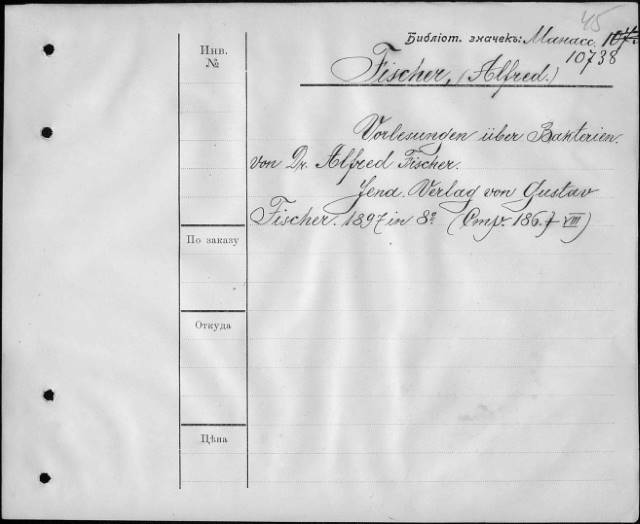 45
Библіот. значекъ: Манасс.
10738
Инв.
№
Fischer, (Alfred.)
Vorlesungen über Bakterien.
von Dr. Alfred Fischer.
Jena. Verlag von Gustav
Fischer. 1897 in 8º (Стр. 186 + VIII)
По заказу
Откуда
Цѣна